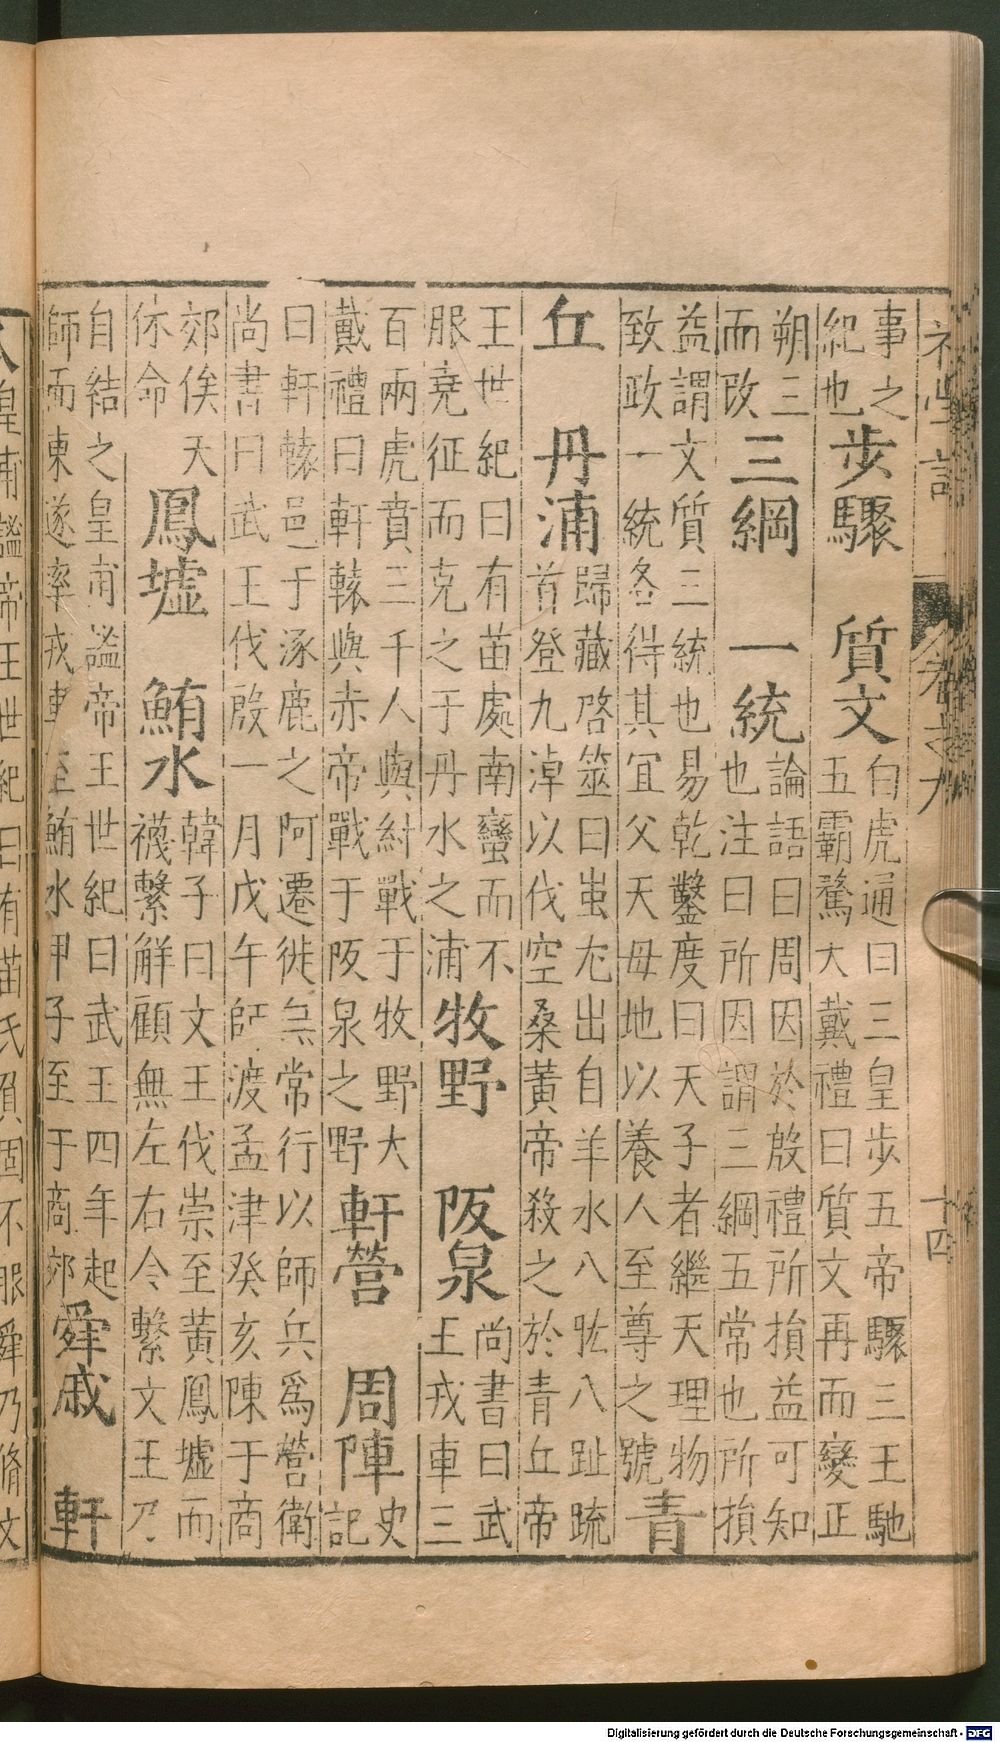 初學記 卷之九 十四
事之
紀也
步驟 質文
白虎通曰三皇步五帝驟三王馳
五霸騖大戴禮曰質文再而變正
朔三
而改
三綱 一統
論語曰周因於殷禮所損益可知
也注曰所因謂三綱五常也所損
益謂文質三統也易乾鑿度曰天子者繼天理物
致政一統各得其宜父天母地以養人至尊之號
青
丘 丹浦
歸藏啓筮曰蚩尤出自羊水八肱八趾疏
首登九淖以伐空桑黃帝殺之於青丘帝
王世紀曰有苗處南蠻而不
服堯征而克之于丹水之浦
牧野 阪泉
尚書曰武
王戎車三
百兩虎賁三千人與紂戰于牧野大
戴禮曰軒轅與赤帝戰于阪泉之野
軒營 周陣
史
記
曰軒轅邑于涿鹿之阿遷徙無常行以師兵爲營衛
尚書曰武王伐殷一月戊午師渡孟津癸亥陳于商
郊俟天
休命
鳳墟 鮪水
韓子曰文王伐崇至黃鳳墟而
襪繫解顧無左右令繫文王乃
自結之皇甫謐帝王世紀曰武王四年起
師而東遂率戎車至鮪水甲子至于商郊
舜戚 軒
皇甫謐帝王世紀曰有苗氏負固不服舜乃脩文
Digitalisierung gefördert durch die Deutsche Forschungsgemeinschaft - DFG